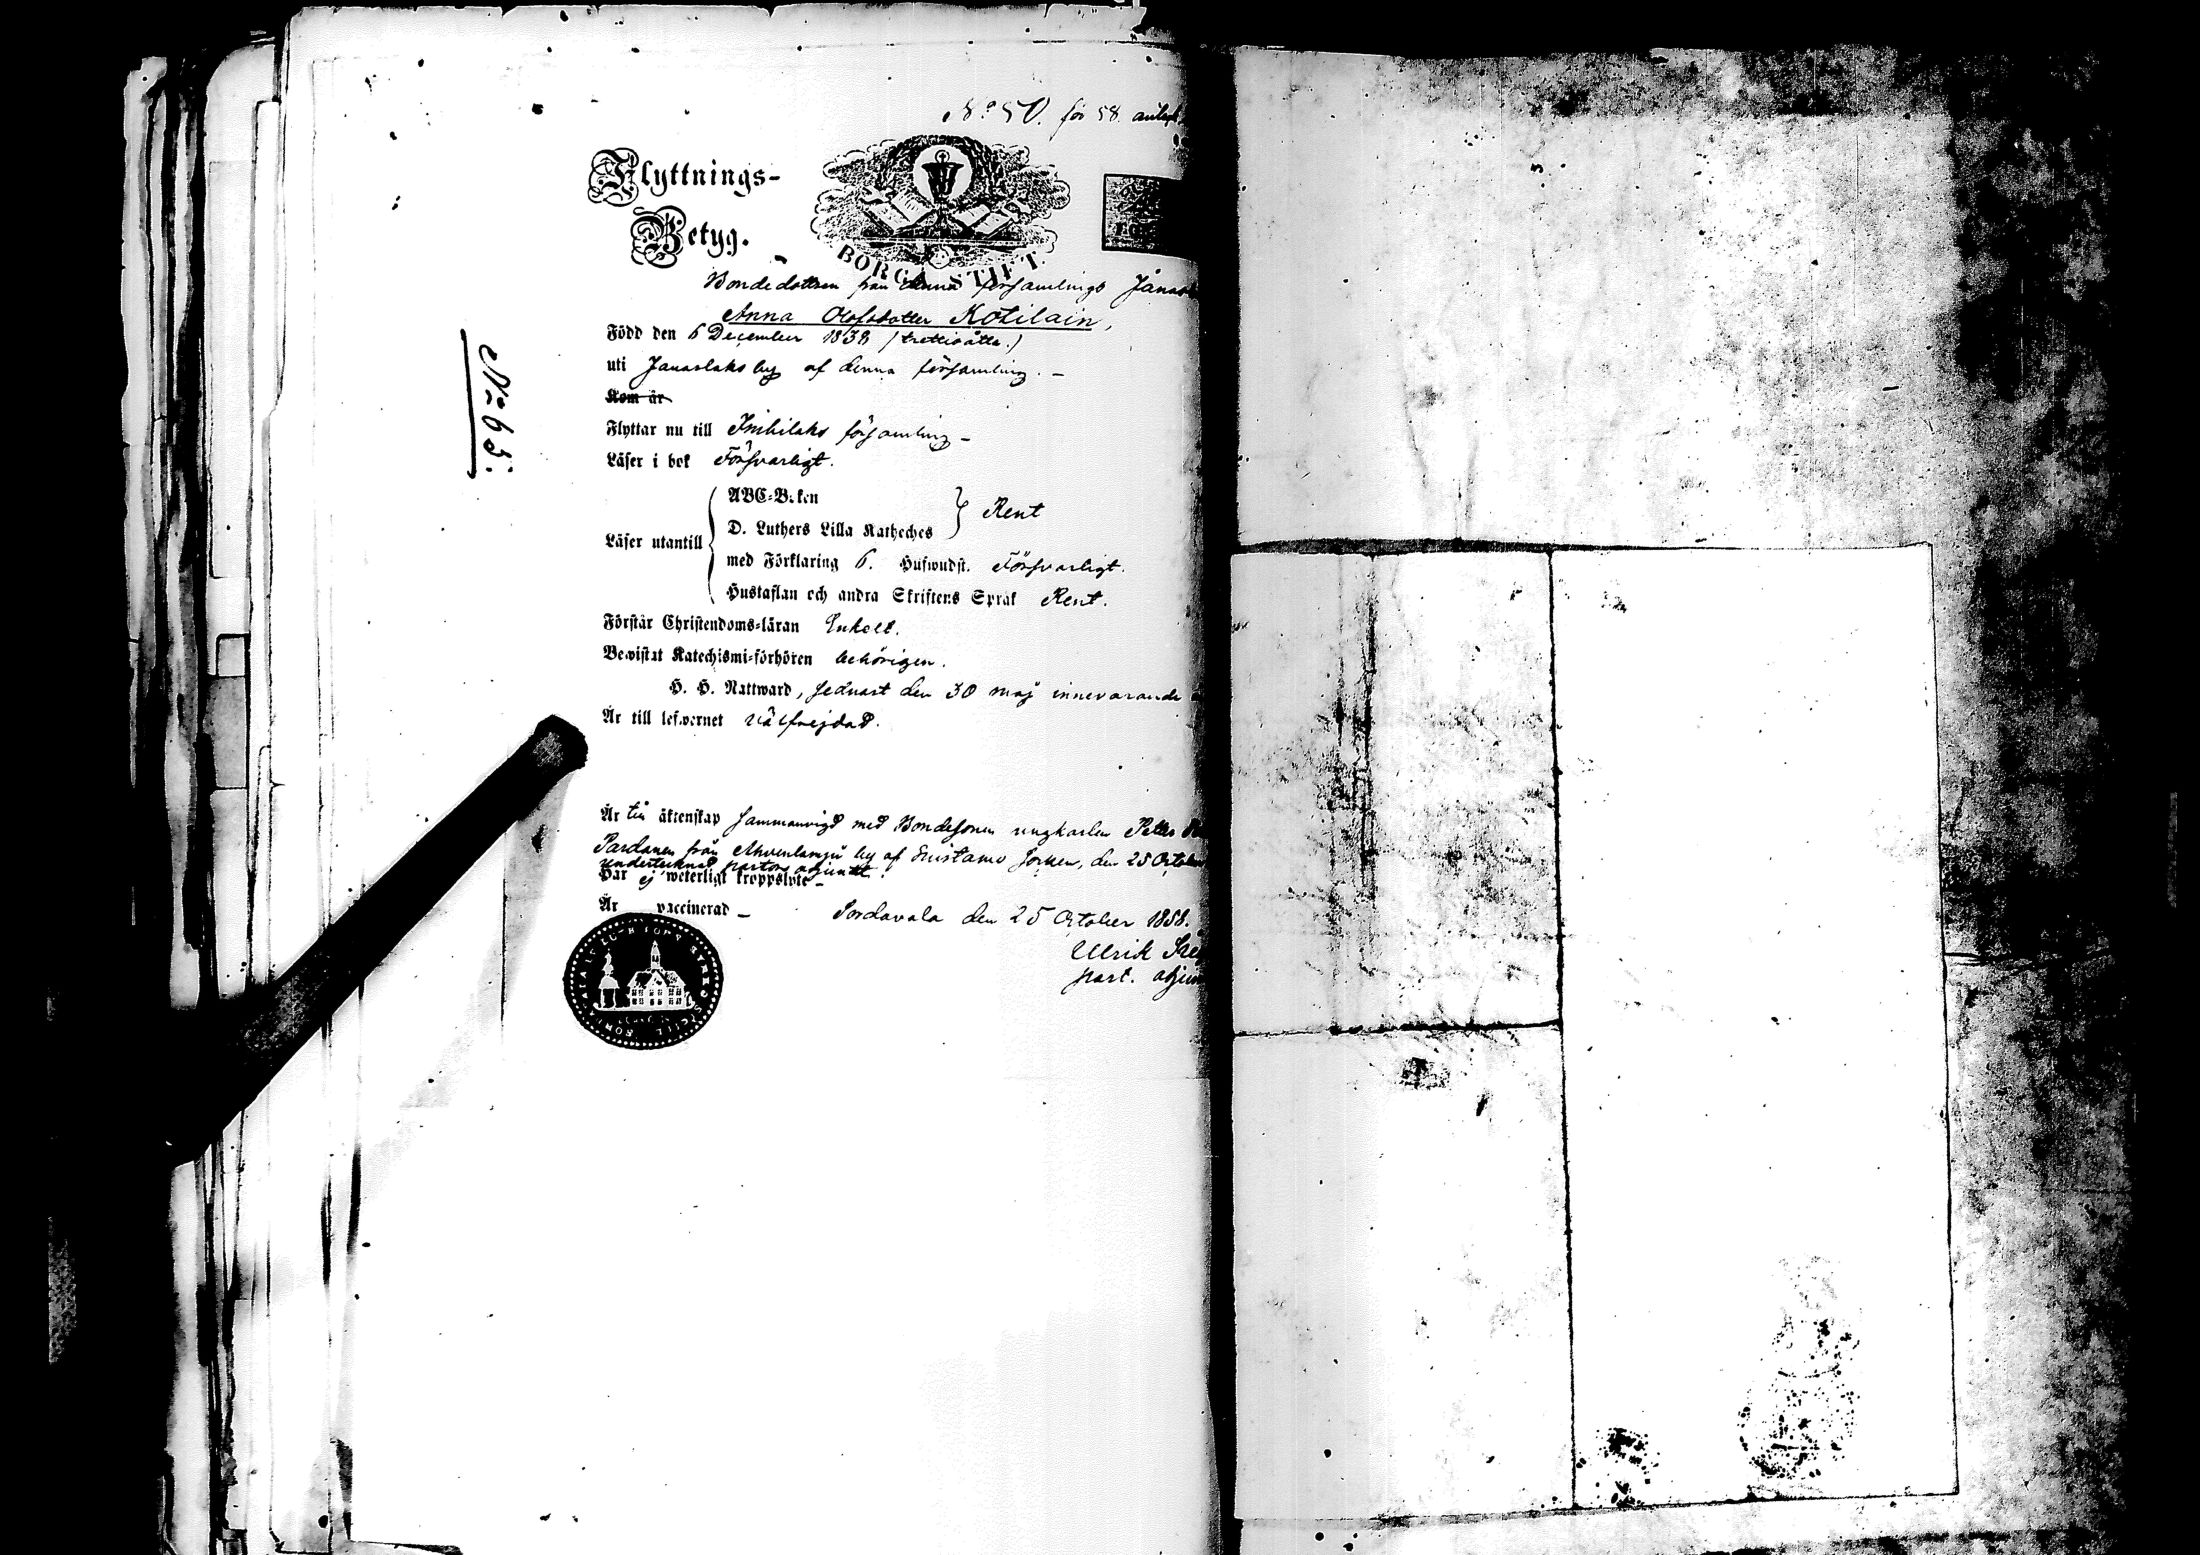 för 58.
Flyttnings-
Betyg.
BORGÅ STIFT.
Bondedottren från denna församlings
Anna Olofsdotter Kotilain,
Född den 6 December 1838 (trettioåtta.)
uti Janaslaks by af denna församling. -
Kom år
Flyttar nu till Imbilaks församling -
Läser i bok Försvarligt.
ABC-Boken
D. Luthers Lilla Katheches } Rent
Läser utantill
med Förklaring 6. Hufwudst. Försvarligt.
Hustaflan och andra Skriftens Språk Rent.
Förstår Christendoms-läran Enkelt.
Bewistat Katechismi-förhören behörigen.
H. H. Nattward, sednast den 30 maj innevarande
Är till lefwernet välfrejdad.
Är till äktenskap sammanvigd med Bondesonen ungkarlen Petter
Pardanen från by af Suistamo Socken, den 25 October
undertecknad pastors adjunkt.
Har ej weterligt kroppslyte -
Är vaccinerad -
Sordavala den 25 October 1858.
Ulrik
past.
No 65.